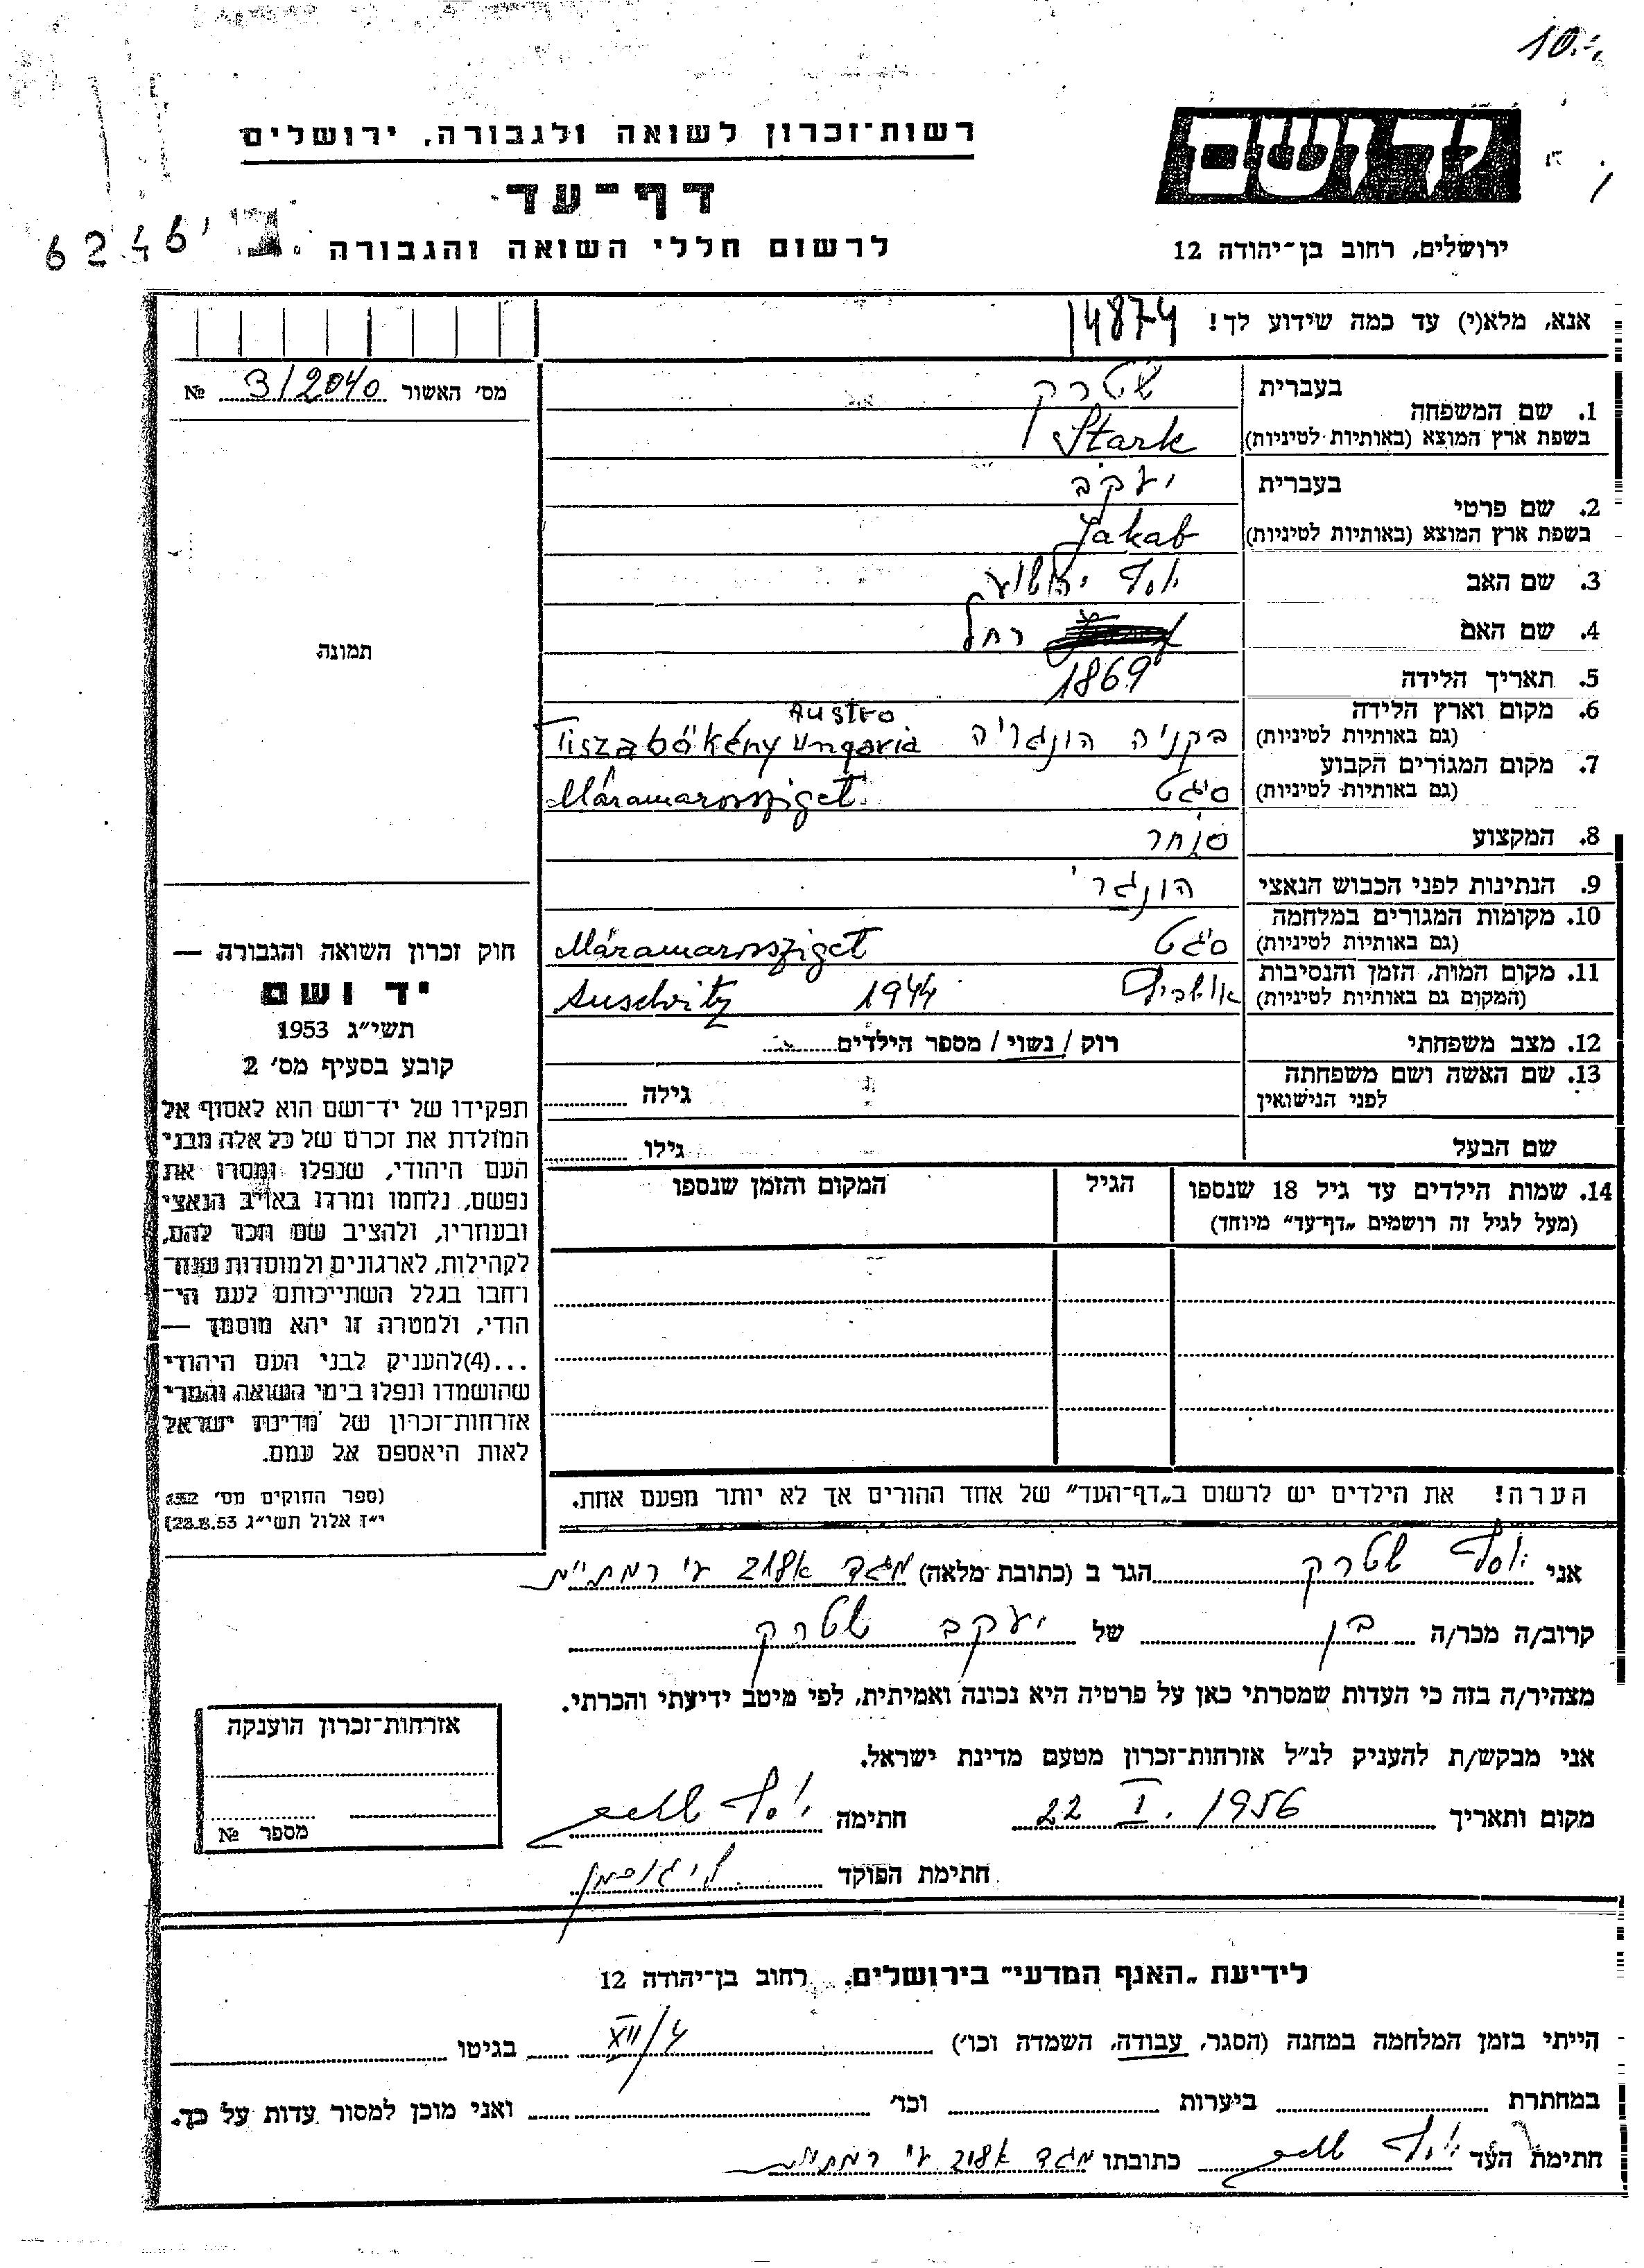 10.-
יד ושם
רשות-זכרון לשואה ולגבורה, ירושלים
דף-עד
לרשום חללי השואה והגבורה
ירושלים, רחוב בן-יהודה 12
אנא, מלא(י) עד כמה שידוע לך! 14874
מס׳ האשור 3/2040 №
תמונה
1. שם המשפחה
בעברית שטרק
בשפת ארץ המוצא (באותיות לטיניות) Stark
2. שם פרטי
בעברית יעקב
בשפת ארץ המוצא (באותיות לטיניות) Jakab
3. שם האב יוסף יהושוע
4. שם האם רחל
5. תאריך הלידה 1869
6. מקום וארץ הלידה
(גם באותיות לטיניות) בקניה הונגריה Tiszabökény Austro Ungaria
7. מקום המגורים הקבוע
(גם באותיות לטיניות) סיגט Máramarossziget
8. המקצוע סוחר
9. הנתינות לפני הכבוש הנאצי הונגרי
10. מקומות המגורים במלחמה
(גם באותיות לטיניות) סיגט Máramarossziget
11. מקום המות, הזמן והנסיבות
(המקום גם באותיות לטיניות) 1944 Auschvitz
12. מצב משפחתי רוק / נשוי / מספר הילדים
13. שם האשה ושם משפחתה
לפני הנישואין גילה
שם הבעל גילו
14. שמות הילדים עד גיל 18 שנספו הגיל המקום והזמן שנספו
(מעל לגיל זה רושמים „דף-עד" מיוחד)
הערה! את הילדים יש לרשום ב„דף-העד" של אחד ההורים אך לא יותר מפעם אחת.
חוק זכרון השואה והגבורה —
יד ושם
תשי״ג 1953
קובע בסעיף מס׳ 2
תפקידו של יד-ושם הוא לאסוף אל
המולדת את זכרם של כל אלה מבני
העם היהודי, שנפלו ומסרו את
נפשם, נלחמו ומרדו באויב הנאצי
ובעוזריו, ולהציב שם וזכר להם,
לקהילות, לארגונים ולמוסדות שנח-
רחבו בגלל השתייכותם לעם הי-
הודי, ולמטרה זו יהא מוסמך —
...(4)להעניק לבני העם היהודי
שהושמדו ונפלו בימי השואה והמרי
אזרחות-זכרון של מדינת ישראל
לאות היאספם אל עמם.
(ספר החוקים מס׳ 132
י״ז אלול תשי״ג 28.8.53)
אני יוסף שטרק הגר ב (כתובת מלאה)
קרוב/ה מכר/ה בן של יעקב שטרק
מצהיר/ה בזה כי העדות שמסרתי כאן על פרטיה היא נכונה ואמיתית, לפי מיטב ידיעתי והכרתי.
אני מבקש/ת להעניק לנ״ל אזרחות-זכרון מטעם מדינת ישראל.
מקום ותאריך 22 I. 1956 חתימה
חתימת הפוקד
אזרחות-זכרון הוענקה
מספר №
לידיעת „האגף המדעי" בירושלים, רחוב בן-יהודה 12
הייתי בזמן המלחמה במחנה (הסגר, עבודה, השמדה וכו׳) XII/4 בגיטו
במחתרת ביערות וכו׳ ואני מוכן למסור עדות על כך.
חתימת העד כתובתו